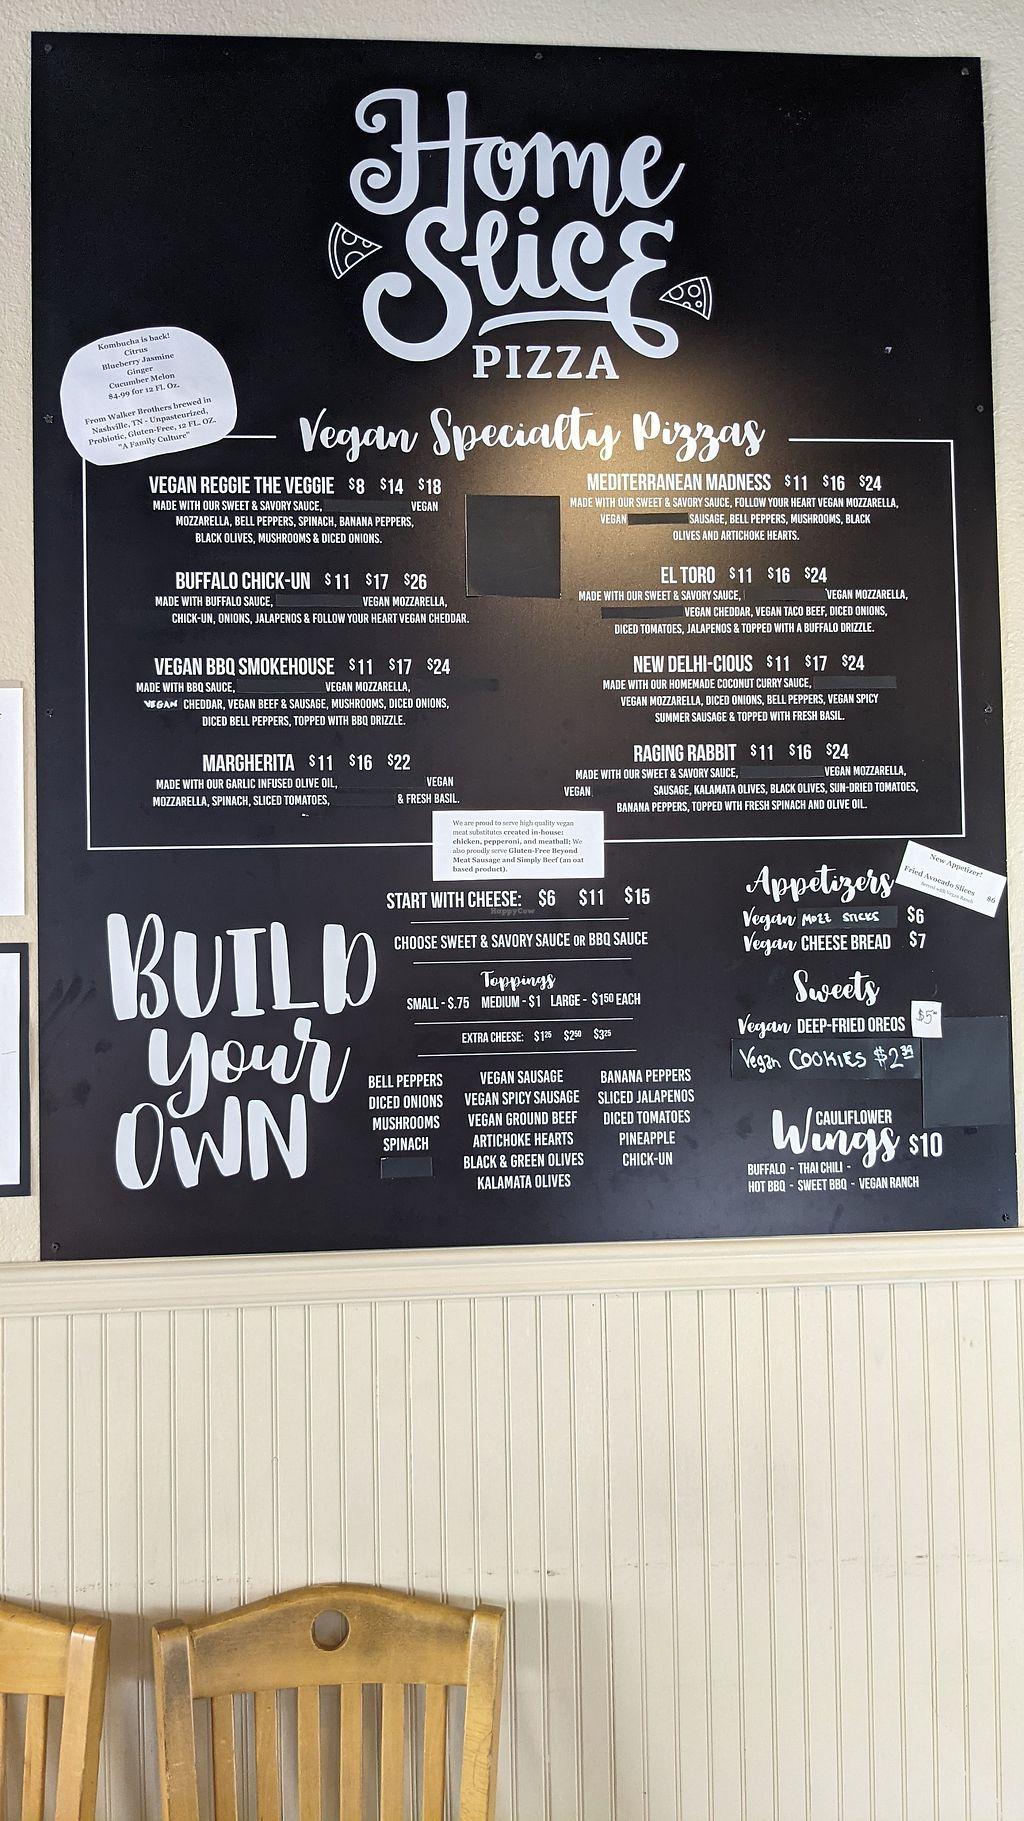 Home
Slice
PIZZA
Kombucha is back!
Citrus
Blueberry Jasmine
Ginger
Cucumber Melon
$4.99 for 12 Fl. Oz.
From Walker Brothers brewed in
Nashville, TN - Unpasteurized,
Probiotic, Gluten-Free, 12 FL. OZ.
"A Family Culture"
Vegan Specialty Pizzas
VEGAN REGGIE THE VEGGIE $8 $14 $18
MADE WITH OUR SWEET & SAVORY SAUCE, VEGAN
MOZZARELLA, BELL PEPPERS, SPINACH, BANANA PEPPERS,
BLACK OLIVES, MUSHROOMS & DICED ONIONS.
BUFFALO CHICK-UN $11 $17 $26
MADE WITH BUFFALO SAUCE, VEGAN MOZZARELLA,
CHICK-UN, ONIONS, JALAPENOS & FOLLOW YOUR HEART VEGAN CHEDDAR.
VEGAN BBQ SMOKEHOUSE $11 $17 $24
MADE WITH BBQ SAUCE, VEGAN MOZZARELLA,
VEGAN CHEDDAR, VEGAN BEEF & SAUSAGE, MUSHROOMS, DICED ONIONS,
DICED BELL PEPPERS, TOPPED WITH BBQ DRIZZLE.
MARGHERITA $11 $16 $22
MADE WITH OUR GARLIC INFUSED OLIVE OIL, VEGAN
MOZZARELLA, SPINACH, SLICED TOMATOES, & FRESH BASIL.
MEDITERRANEAN MADNESS $11 $16 $24
MADE WITH OUR SWEET & SAVORY SAUCE, FOLLOW YOUR HEART VEGAN MOZZARELLA,
VEGAN SAUSAGE, BELL PEPPERS, MUSHROOMS, BLACK
OLIVES AND ARTICHOKE HEARTS.
EL TORO $11 $16 $24
MADE WITH OUR SWEET & SAVORY SAUCE, VEGAN MOZZARELLA,
VEGAN CHEDDAR, VEGAN TACO BEEF, DICED ONIONS,
DICED TOMATOES, JALAPENOS & TOPPED WITH A BUFFALO DRIZZLE.
NEW DELHI-CIOUS $11 $17 $24
MADE WITH OUR HOMEMADE COCONUT CURRY SAUCE,
VEGAN MOZZARELLA, DICED ONIONS, BELL PEPPERS, VEGAN SPICY
SUMMER SAUSAGE & TOPPED WITH FRESH BASIL.
RAGING RABBIT $11 $16 $24
MADE WITH OUR SWEET & SAVORY SAUCE, VEGAN MOZZARELLA,
VEGAN SAUSAGE, KALAMATA OLIVES, BLACK OLIVES, SUN-DRIED TOMATOES,
BANANA PEPPERS, TOPPED WTH FRESH SPINACH AND OLIVE OIL.
We are proud to serve high quality vegan
meat substitutes created in-house:
chicken, pepperoni, and meatball; We
also proudly serve Gluten-Free Beyond
Meat Sausage and Simply Beef (an oat
based product).
BUILD
your
OWN
START WITH CHEESE: $6 $11 $15
HappyCow
CHOOSE SWEET & SAVORY SAUCE OR BBQ SAUCE
Toppings
SMALL - $.75 MEDIUM - $1 LARGE - $1.50 EACH
EXTRA CHEESE: $1.25 $2.50 $3.25
BELL PEPPERS
DICED ONIONS
MUSHROOMS
SPINACH
VEGAN SAUSAGE
VEGAN SPICY SAUSAGE
VEGAN GROUND BEEF
ARTICHOKE HEARTS
BLACK & GREEN OLIVES
KALAMATA OLIVES
BANANA PEPPERS
SLICED JALAPENOS
DICED TOMATOES
PINEAPPLE
CHICK-UN
Appetizers
New Appetizer!
Fried Avocado Slices $6
Served with Vegan Ranch
Vegan MOZZ STICKS $6
Vegan CHEESE BREAD $7
Sweets
Vegan DEEP-FRIED OREOS $5
Vegan COOKIES $2.39
CAULIFLOWER
Wings $10
BUFFALO - THAI CHILI -
HOT BBQ - SWEET BBQ - VEGAN RANCH